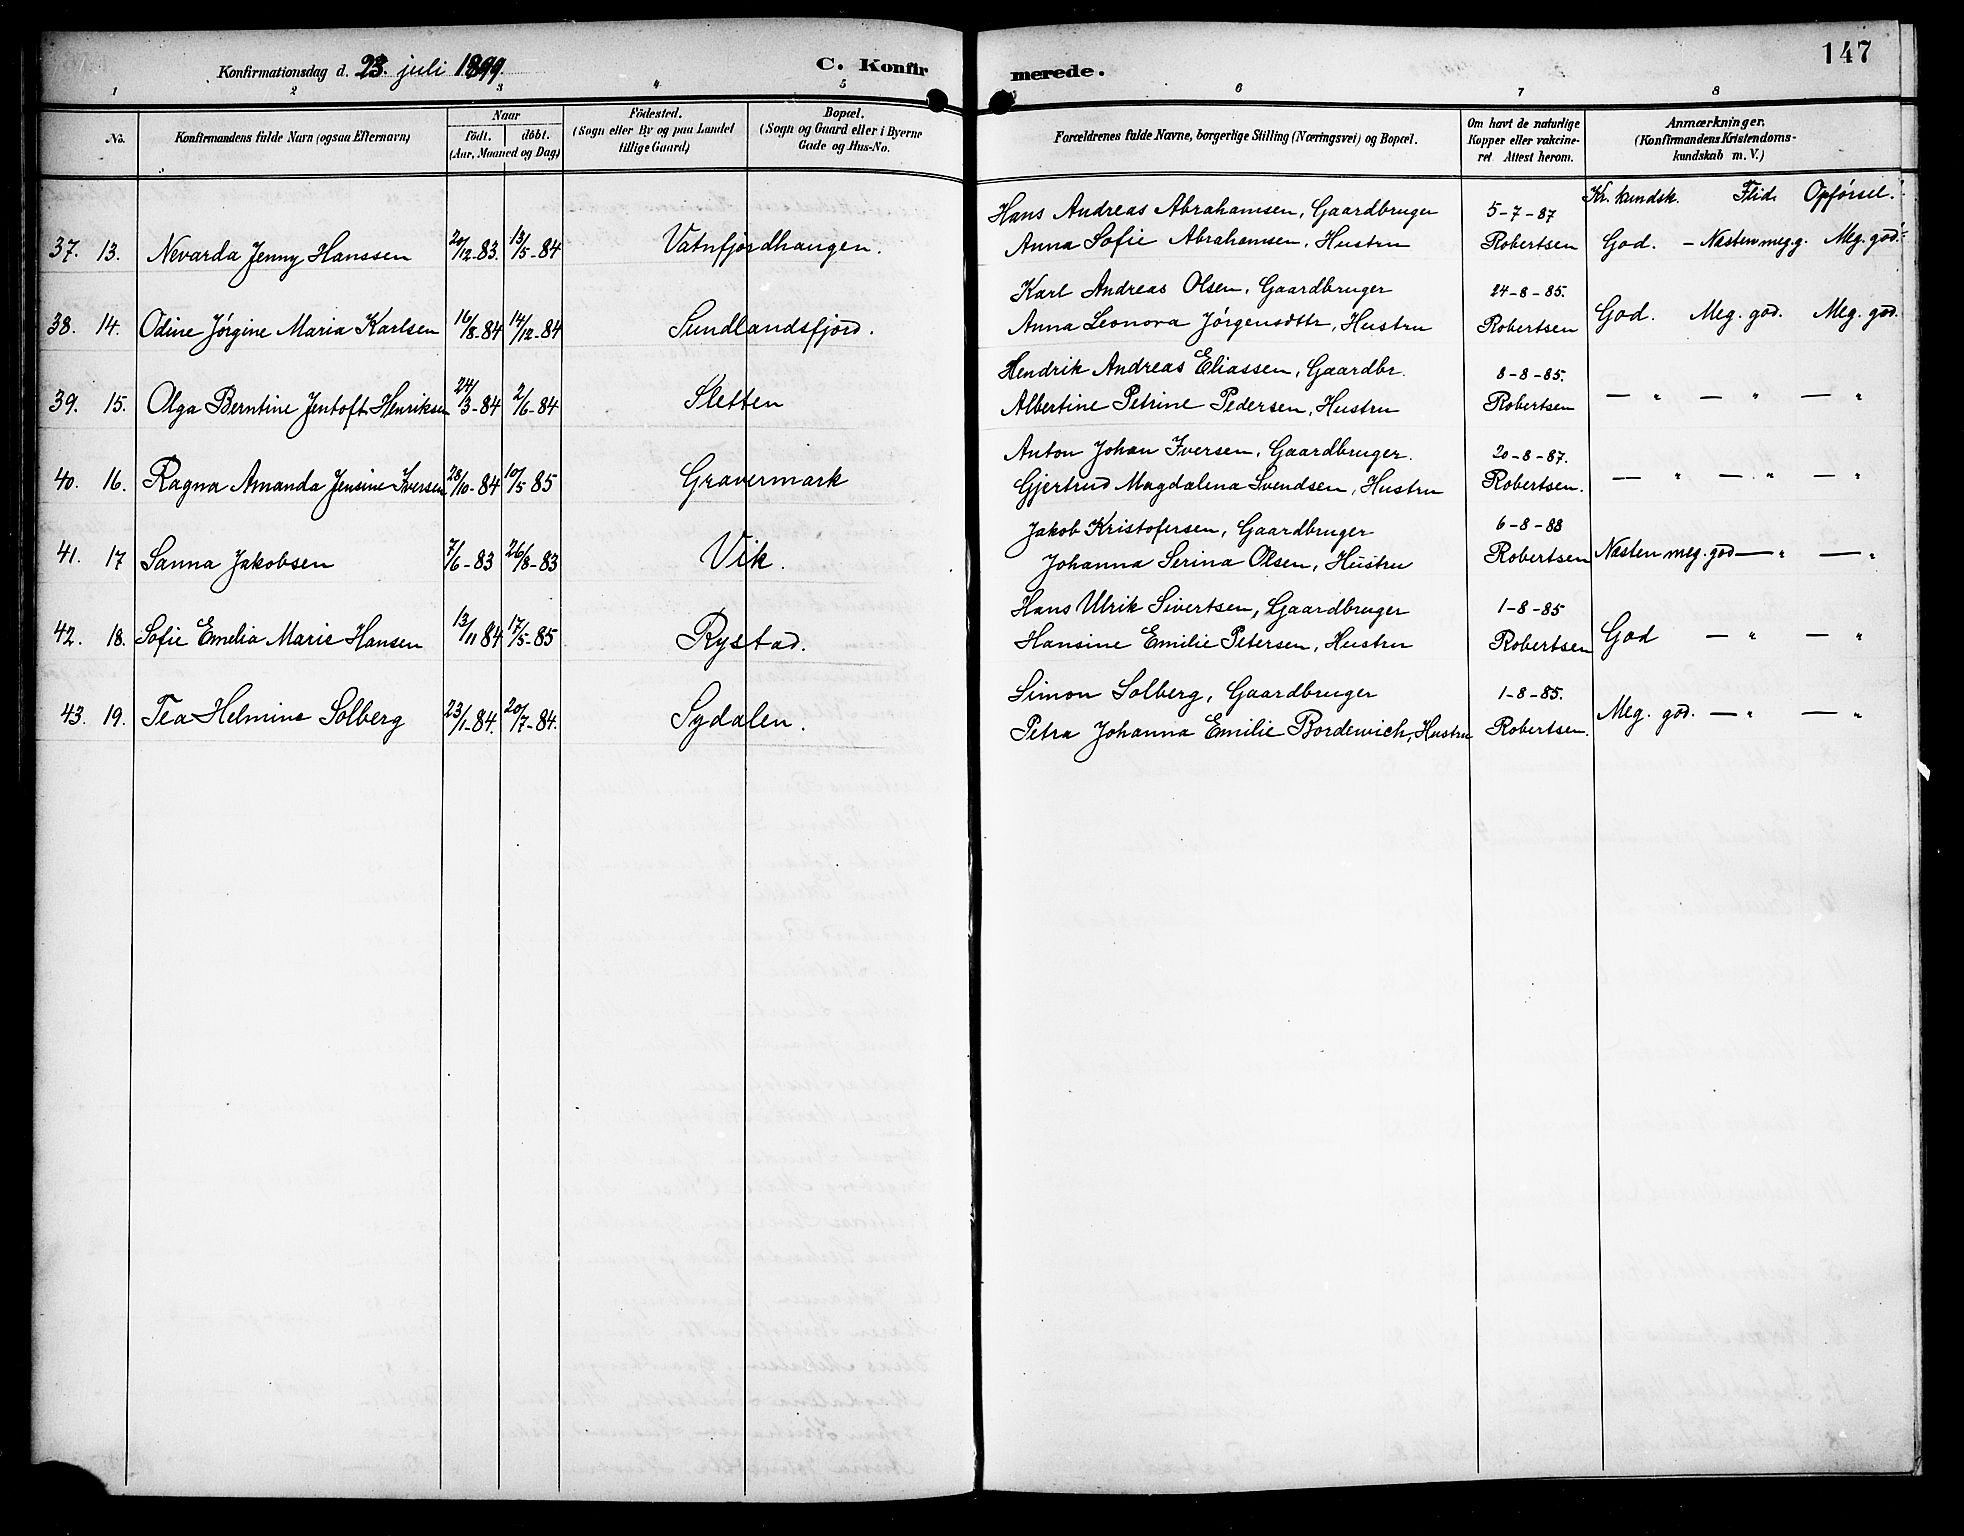 147
Konfirmationsdag d. 23. juli 1899. C. Konfirmerede.
1 2 3 4 5 6 7 8
No.
Konfirmandens fulde Navn (ogsaa Efternavn)
Naar
født. døbt.
(Aar, Maaned og Dag)
Fødested.
(Sogn eller By og paa Landet
tillige Gaard)
Bopæl.
(Sogn og Gaard eller i Byerne
Gade og Hus-No.
Forældrenes fulde Navne, borgerlige Stilling (Næringsvei) og Bopæl.
Om havt de naturlige
Kopper eller vakcine-
ret. Attest herom.
Anmærkninger.
(Konfirmandens Kristendoms-
kundskab m. V.)
Kr. kundsk. Flid. Opførsel.
Hans Andreas Abrahamsen, Gaardbruger 5-7-87
37. 13. Nevarda Jenny Hanssen 20/12-83. 13/5-84 Vatnfjordhaugen. Anna Sofie Abrahamsen, Hustru Robertsen God. - Næsten meg. g. Meg. god.
Karl Andreas Olsen, Gaardbruger 24-8-85.
38. 14. Odine Jørgine Maria Karlsen 16/8-84 14/12-84 Sundlandsfjord. Anna Leonora Jørgensdttr, Hustru Robertsen God. Meg. god. Meg. god.
Hendrik Andreas Eliassen, Gaardbr. 8-8-85.
39. 15. Olga Berntine Jentoft Henriksen 24/3-84 2/6-84 Sletten Albertine Petrine Pedersen, Hustru Robertsen — " — " — "
Anton Johan Iversen, Gaardbruger. 20-8-87.
40. 16. Ragna Amanda Jensine Iversen 28/10-84 10/5 85 Gravermark Gjertrud Magdalena Svendsen, Hustru Robertsen. — " — " — "
Jakob Kristofersen, Gaardbruger 6-8-88
41. 17 Sanna Jakobsen 7/6-83 26/8-83 Vik. Johanna Serina Olsen, Hustru Robertsen Næsten meg. god — " — "
Hans Ulrik Sivertsen, Gaardbruger 1-8-85
42. 18. Sofie Emelia Marie Hansen 13/11 84 17/5-85 Rystad. Hansine Emilie Petersen, Hustru Robertsen God — " — "
Simon Solberg, Gaardbruger 1-8-85.
43. 19. Tea Helmine Solberg 23/1-84. 20/7-84. Sydalen. Petra Johanna Emilie Bordewich, Hustru Robertsen. Meg. god. — " — "